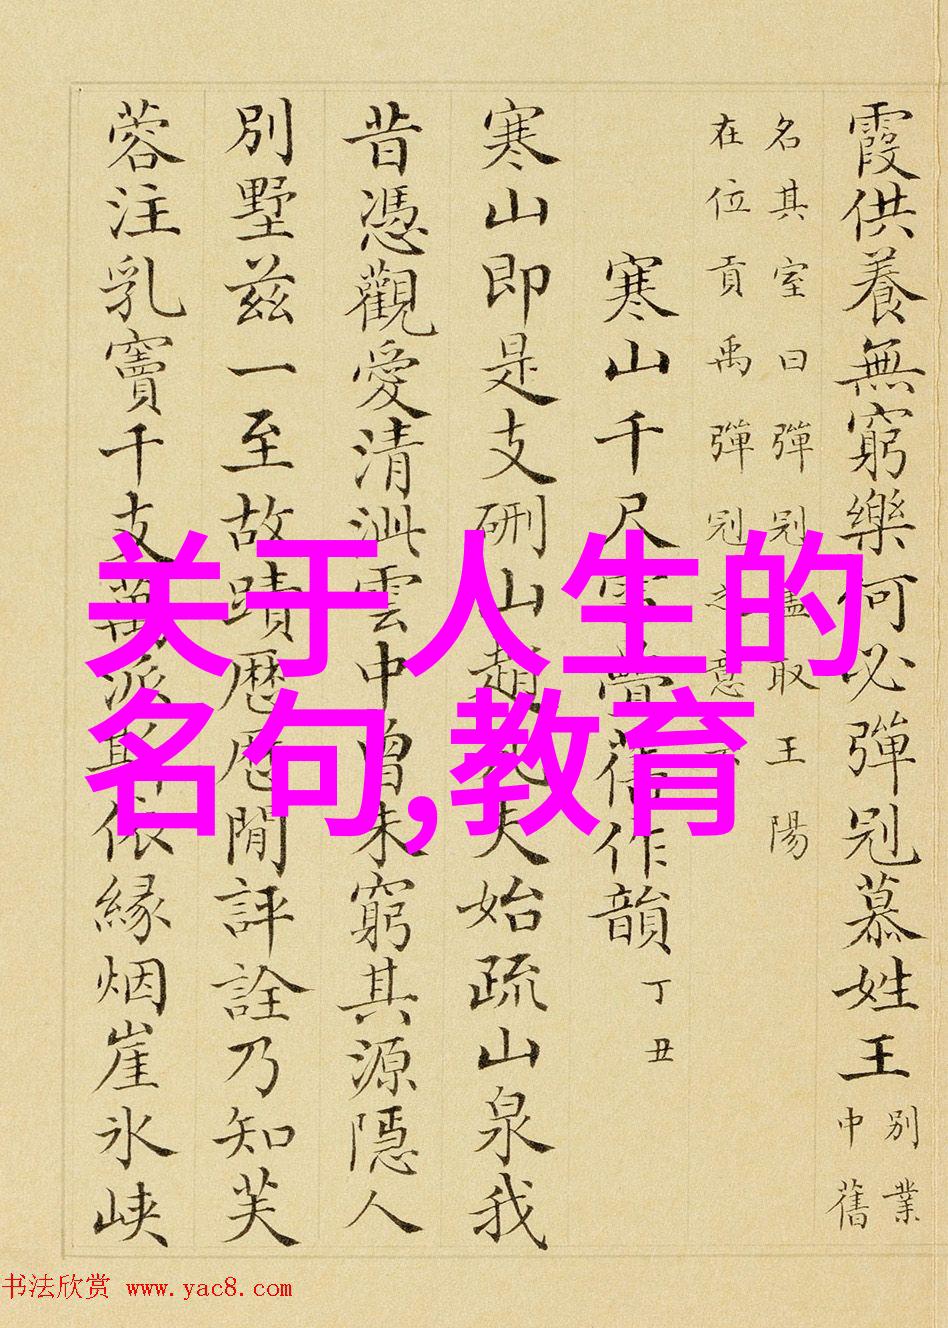 霞供養無窮樂何必彈冠慕姓王
別業
中舊
名其室曰彈冠取王陽
在位貢禹彈冠之意
寒山千尺雪疊舊作韻
丁丑
寒山即是支硎山趙夫始疏山泉我
昔憑觀愛清泚雲中曾未窮其源隱人
別墅兹一至故蹟歷歷閒評詮乃知芙
蓉注乳竇千支萬派斯依緣烟崖氷峽
关于人生的
名句,教育
书法欣赏 www.yac8.com